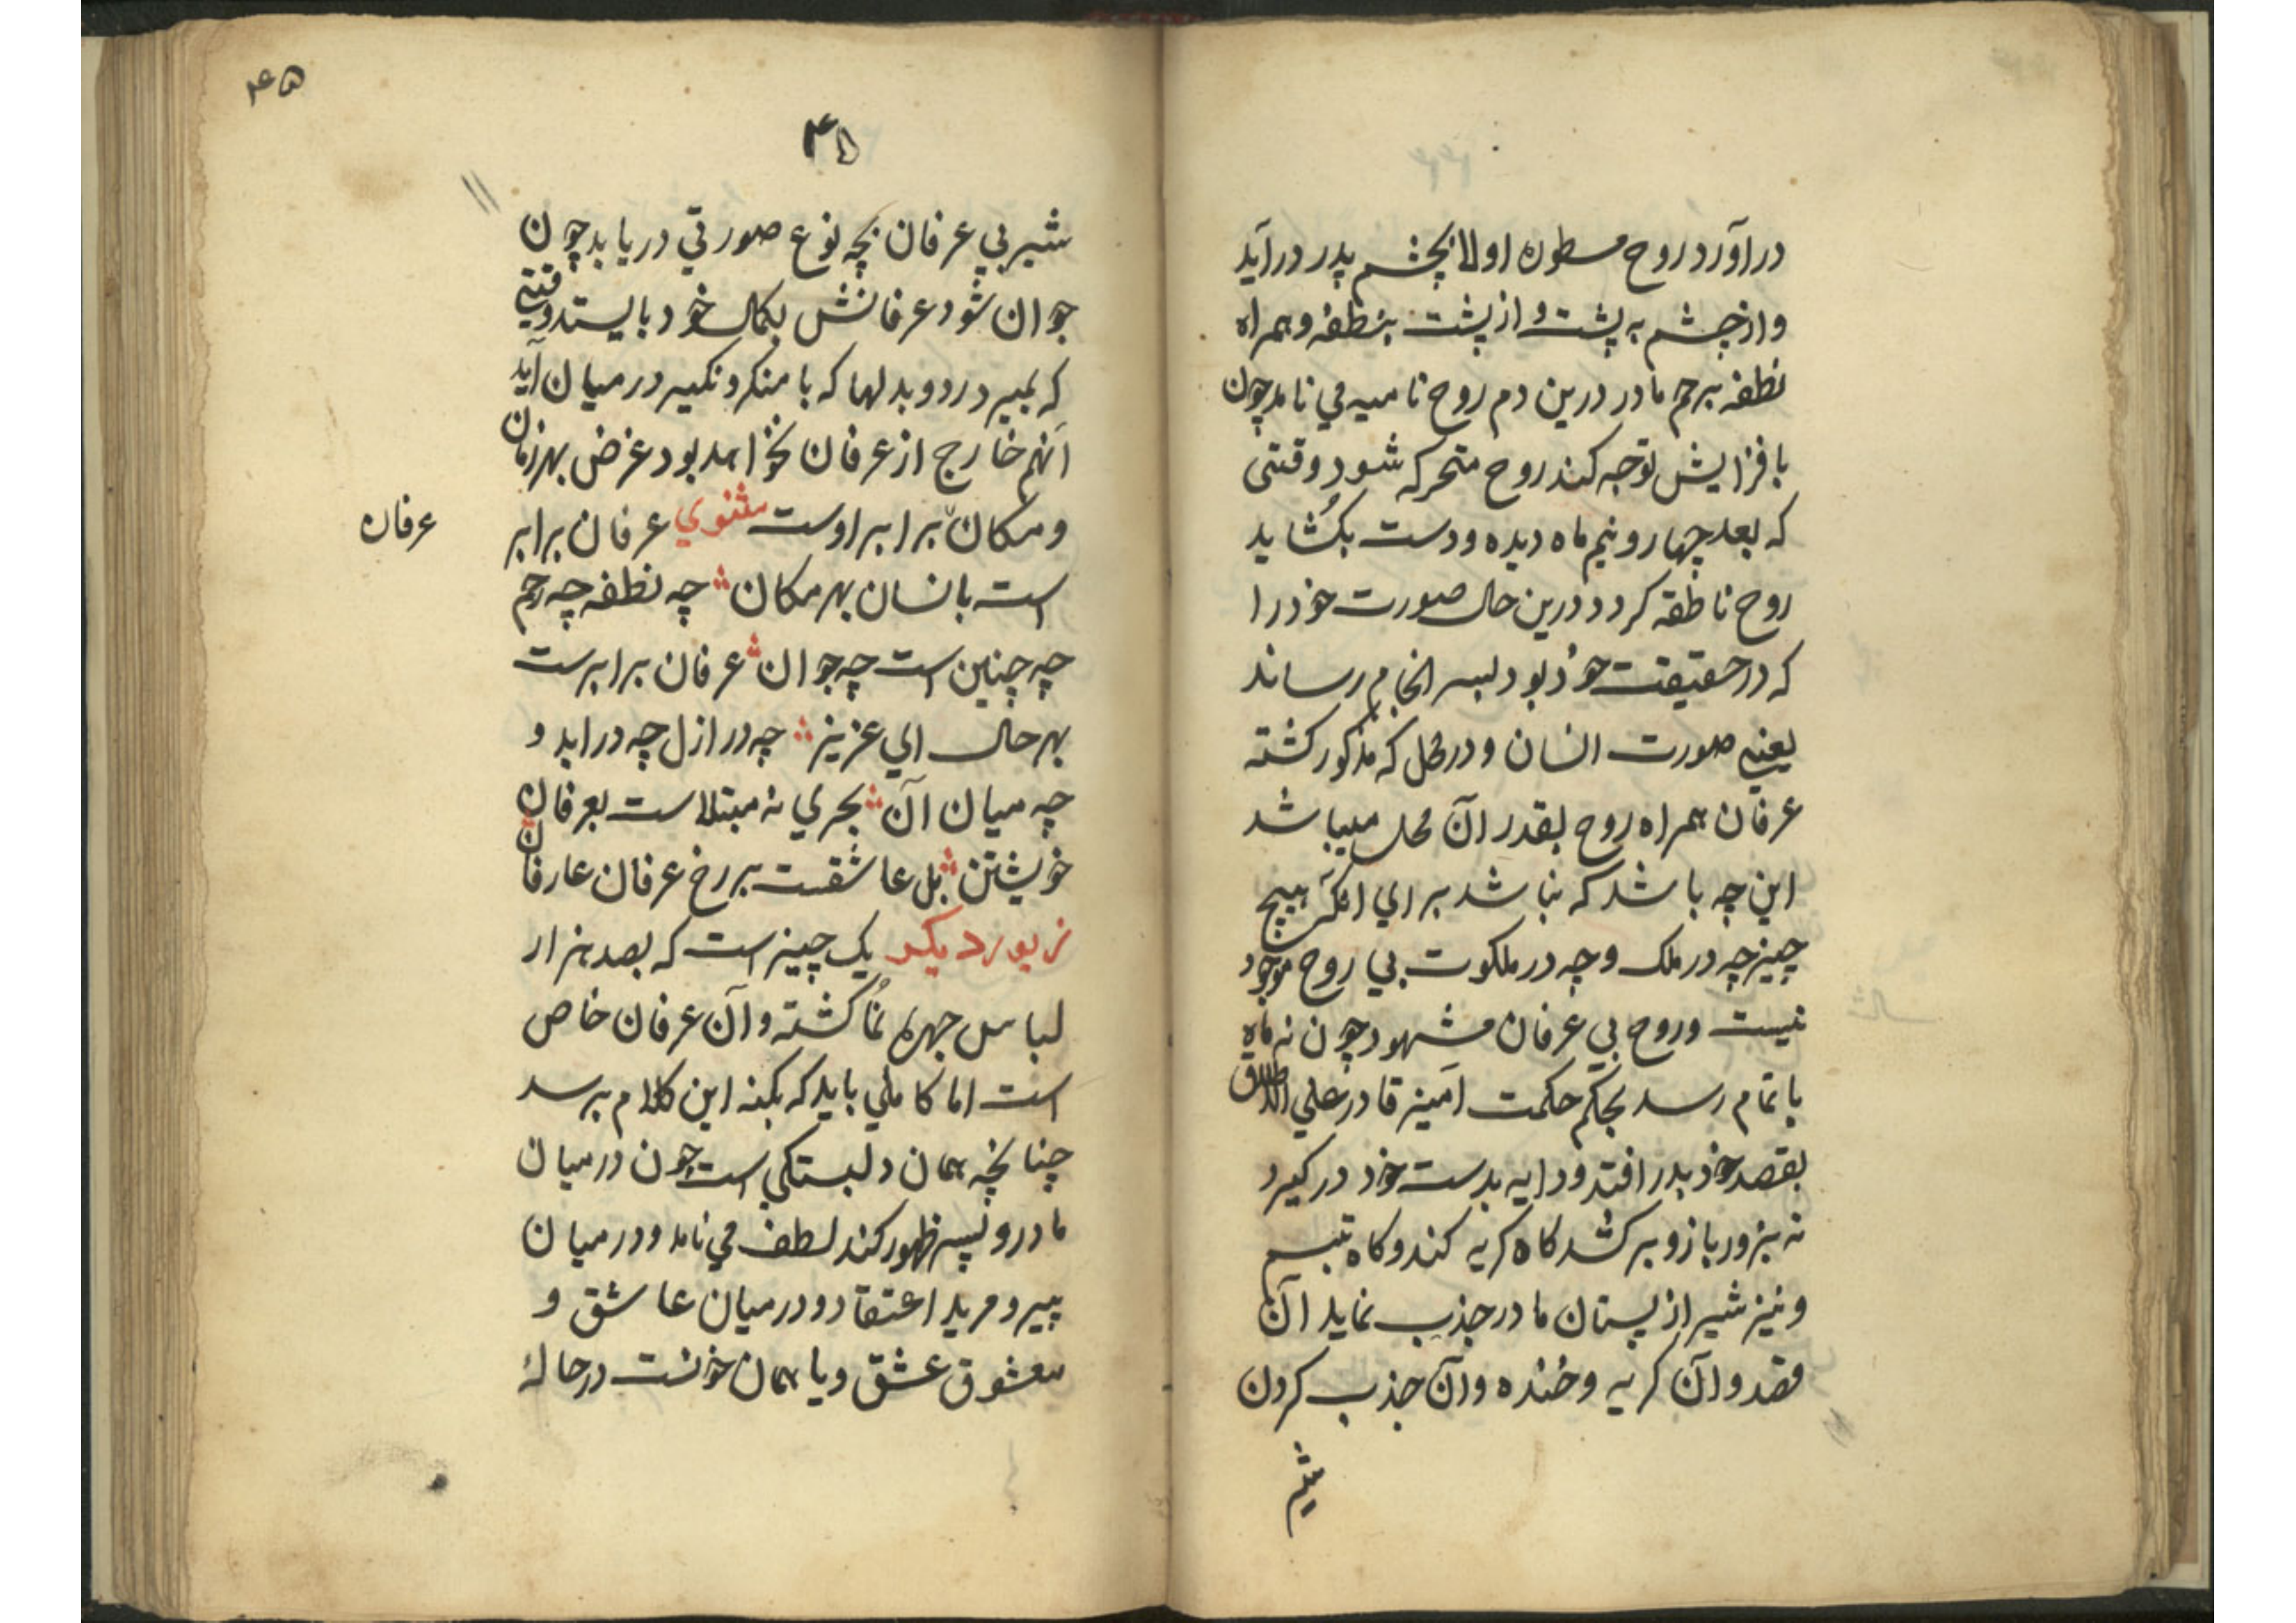 درآورد روح مسطوره اولا بچشم پدر درآید
واز چشم به پشت و از پشت بنطفه و همراه
نطفه برحم مادر درین دم روح نامیه می نامد چون
بافزایش توجه کند روح متحرکه شود وقتی
که بعد چهار و نیم ماه دیده و دست بکشاید
روح ناطقه کردد درین حال صورت خود را
که در حقیقت خود بود بسر انجام رساند
یعنی صورت انسان و در محل که مذکور کشته
عرفان همراه روح بقدر آن محل میباشد
این چه باشد که نباشد برای آنکه هیچ
چیز چه در ملک و چه در ملکوت بی روح موجود
نیست و روح بی عرفان مشهود چون نه ماه
باتمام رسد بحکم حکمت آمیز قادر علی الاطلاق
بقصد خود بدر افتد و دایه بدست خود درکیرد
نه بزور بازو برکشد کاه کریه کند و کاه تبسم
و نیز شیر از پستان مادر جذب نماید آن
قصد و آن کریه و خنده و آن جذب کردن
۴۵
۴۵
شیر بی عرفان بچه نوع صورتی دریابد چون
جوان شود عرفانش بکمال خود بایستد وقتی
که بمیرد ردوبدلها که با منکر و نکیر درمیان آید
آنهم خارج از عرفان نخواهد بود غرض بهر زمان
و مکان برابر اوست مثنوی عرفان برابر
است بانسان بهر مکان چه نطفه چه رحم
چه چنین است چه جوان عرفان برابرست
بهر حال ای عزیز چه در ازل چه در ابد و
چه میان آن بحری نه مبتلاست بعرفان
خویشتن بل عاشقست بر رخ عرفان عارفان
زیور دیکر یک چیز است که بصد هزار
لباس چهره نما کشته و آن عرفان خاص
است اما کاملی باید که بکنه این کلام برسد
چنانچه همان دلبستکی است چون درمیان
مادر و پسر ظهور کند لطف می نامد و درمیان
پیر و مرید اعتقاد و درمیان عاشق و
معشوق عشق و یا همان خونست در حالۀ
عرفان